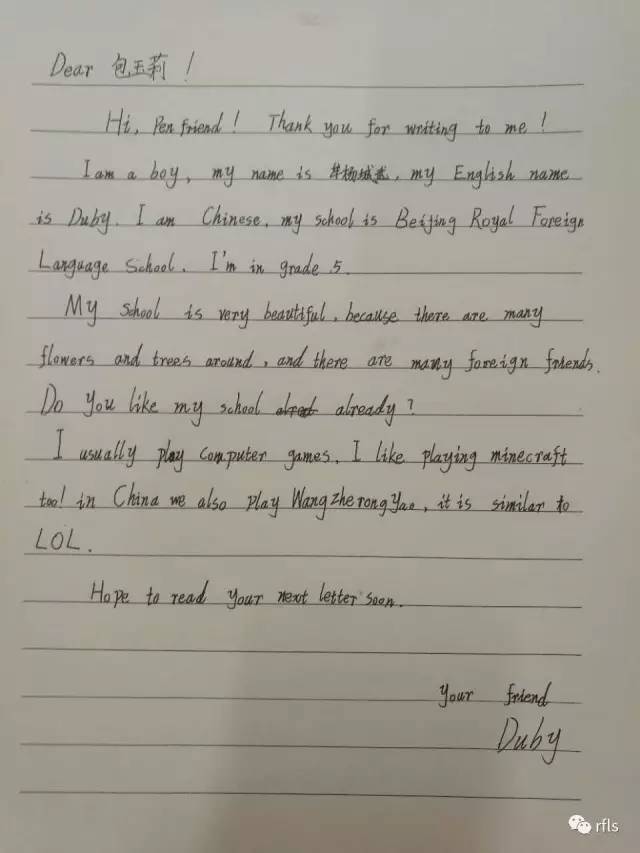 Dear 包玉莉！
Hi, Pen friend! Thank you for writing to me!
I am a boy, my name is 杨城, my English name
is Duby. I am Chinese, my school is Beijing Royal Foreign
Language School. I'm in grade 5.
My school is very beautiful, because there are many
flowers and trees around, and there are many foreign friends.
Do you like my school already?
I usually play computer games. I like playing minecraft
too! in China we also play Wangzherongyao, it is similar to
LOL.
Hope to read your next letter soon.
your friend
Duby
rfls